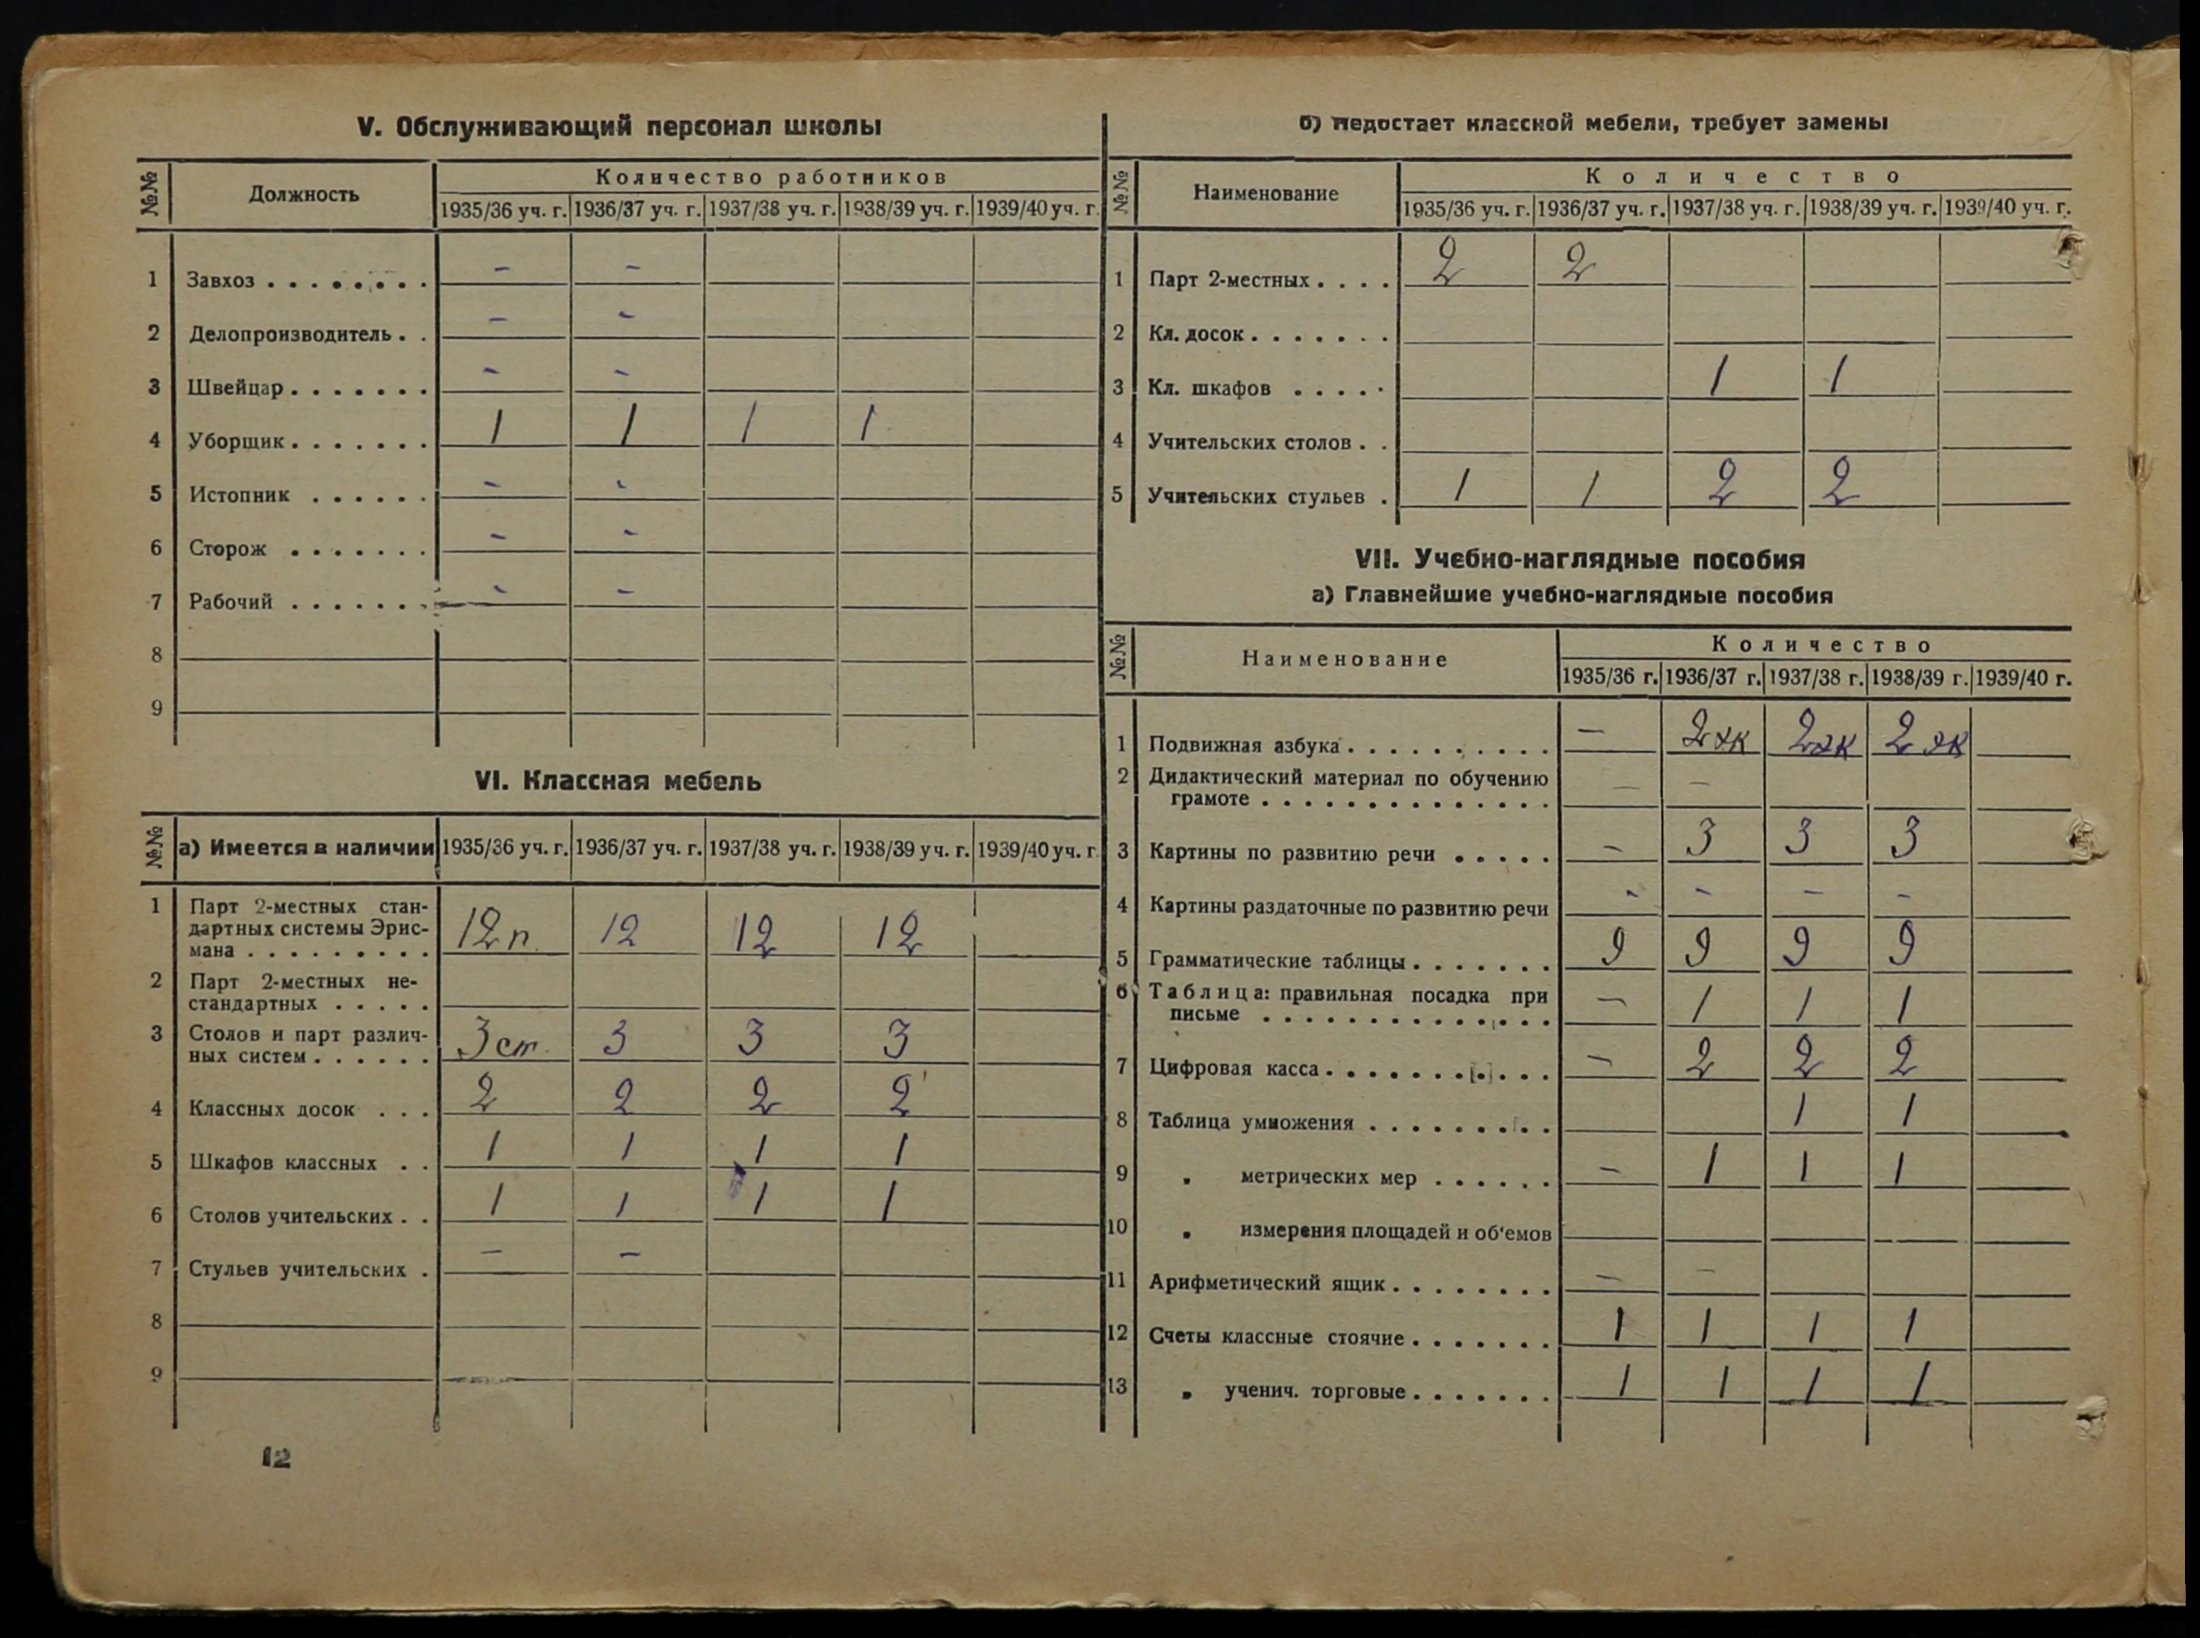 V. Обслуживающий персонал школы
№№ Должность Количество работников
1935/36 уч. г. 1936/37 уч. г. 1937/38 уч. г. 1938/39 уч. г. 1939/40 уч. г.
1 Завхоз . . . . . . . . – –
2 Делопроизводитель . . – –
3 Швейцар . . . . . . . – –
4 Уборщик . . . . . . . 1 1 1 1
5 Истопник . . . . . . – –
6 Сторож . . . . . . . – –
7 Рабочий . . . . . . . – –
8
9
VI. Классная мебель
№№ а) Имеется в наличии 1935/36 уч. г. 1936/37 уч. г. 1937/38 уч. г. 1938/39 уч. г. 1939/40 уч. г.
1 Парт 2-местных стан-
дартных системы Эрис-
мана . . . . . . . . . 12 п. 12 12 12
2 Парт 2-местных не-
стандартных . . . . .
3 Столов и парт различ-
ных систем . . . . . . 3 ст. 3 3 3
4 Классных досок . . . 2 2 2 2
5 Шкафов классных . . 1 1 1 1
6 Столов учительских . . 1 1 1 1
7 Стульев учительских . – –
8
9
12
б) Недостает классной мебели, требует замены
№№ Наименование Количество
1935/36 уч. г. 1936/37 уч. г. 1937/38 уч. г. 1938/39 уч. г. 1939/40 уч. г.
1 Парт 2-местных . . . . 2 2
2 Кл. досок . . . . . . .
3 Кл. шкафов . . . . . 1 1
4 Учительских столов . .
5 Учительских стульев . 1 1 2 2
VII. Учебно-наглядные пособия
а) Главнейшие учебно-наглядные пособия
№№ Наименование Количество
1935/36 г. 1936/37 г. 1937/38 г. 1938/39 г. 1939/40 г.
1 Подвижная азбука . . . . . . . . . . – 2 эк 2 эк 2 эк
2 Дидактический материал по обучению
грамоте . . . . . . . . . . . . . . – –
3 Картины по развитию речи . . . . . – 3 3 3
4 Картины раздаточные по развитию речи – – – –
5 Грамматические таблицы . . . . . . . 9 9 9 9
6 Таблица: правильная посадка при
письме . . . . . . . . . . . . . . – 1 1 1
7 Цифровая касса . . . . . . . . . . . – 2 2 2
8 Таблица умножения . . . . . . . . . 1 1
9 „ метрических мер . . . . . . – 1 1 1
10 „ измерения площадей и об'емов
11 Арифметический ящик . . . . . . . . – –
12 Счеты классные стоячие . . . . . . . 1 1 1 1
13 „ ученич. торговые . . . . . . . 1 1 1 1